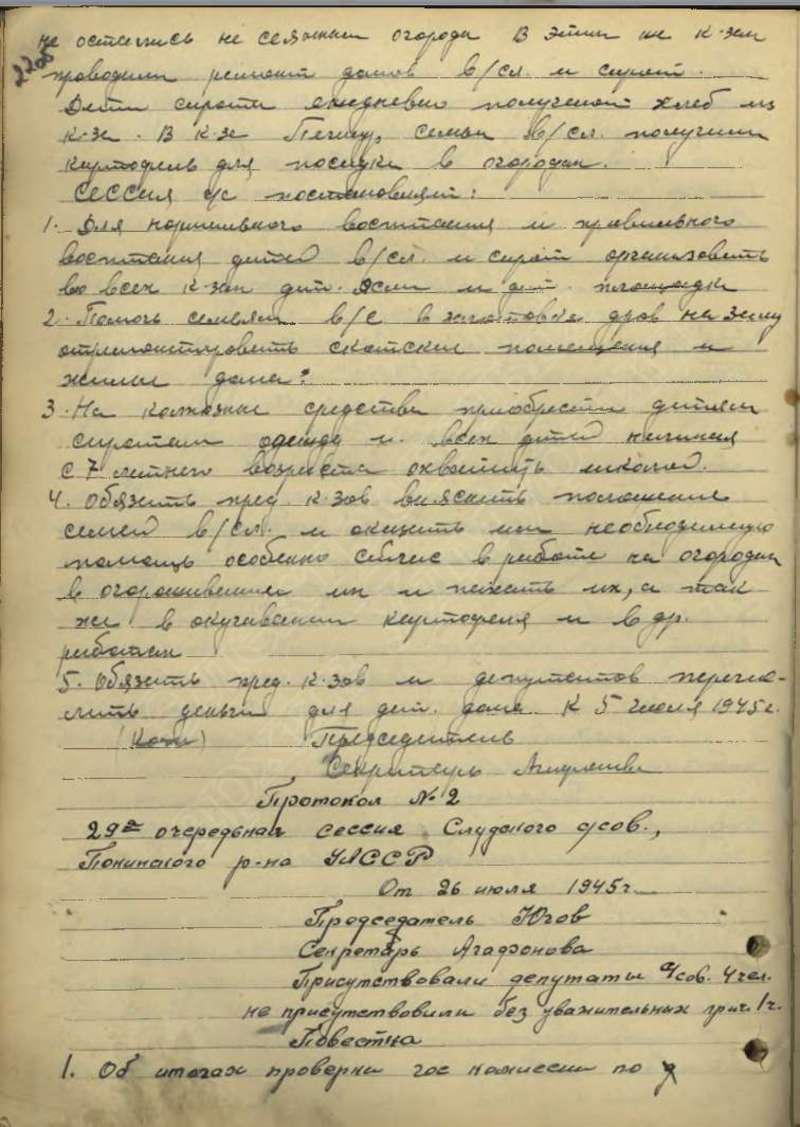 не остались не сеянные огорода В этим же к-зам
проводили ремонт домов в/сл. и сирот.
Дети сироты ежедневно получают хлеб из
к-за. В к-зе семьи в/сл. получили
картофель для посадки в огородах.
Сессия с/с постановляет:
1. Для нормального воспитания и правильного
воспитания детей в/сл. и сирот организовать
во всех к-зах дет. ясли и дет. площадки
2. Помочь семьям в/с в заготовке дров на зиму
отремонтировать скотские помещения и
жилые дома.
3. На колхозные средства приобрести детям
сиротам одежду и всех детей начиная
с 7 летнего возраста охватить школой.
4. Обязать пред. к-зов выяснить положение
семей в/сл. и оказать им необходимую
помощь особенно сейчас в работе на огородах
в огораживании их и пахать их, а так
же в окучивании картофеля и в др.
работах
5. Обязать пред. к-зов и депутатов перечис-
лить деньги для дет. дома к 5 июля 1945 г.
Председатель
Секретарь
Протокол № 2
29ая очередная сессия Слудского с/сов.,
р-на УАССР
От 26 июля 1945 г.
Председатель Югов
Секретарь Агафонова
Присутствовали депутаты с/сов. 4 чел.
не присутствовали без уважительных прич. 1 ч.
Повестка
1. Об итогах проверки гос комиссии по